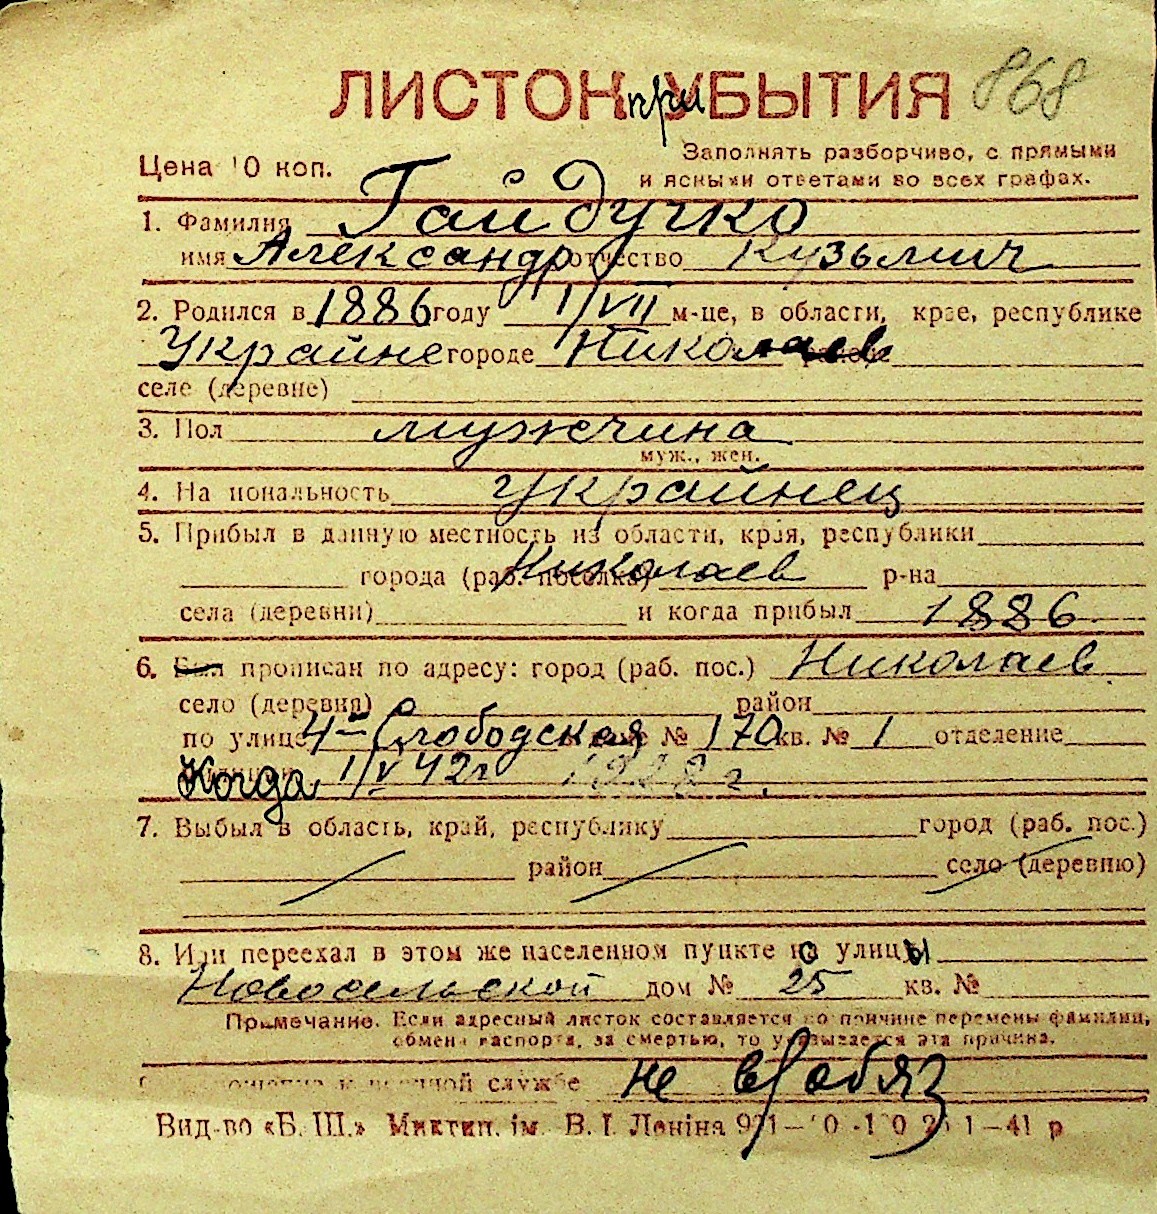 ЛИСТОК при УБЫТИЯ 868
Цена 10 коп.
Заполнять разборчиво, с прямыми
и ясными ответами во всех графах.
1. Фамилия Гайдучко
имя Александр отчество Кузьмич
2. Родился в 1886 году 1/VII м-це, в области, крае, республике
Украйне городе Николаев
селе (деревне)
3. Пол мужчина
муж., жен.
4. На иональность Украйнец
5. Прибыл в данную местность из области, края, республики
города (раб. поселка) Николаев р-на
села (деревни) и когда прибыл 1886
6. Был прописан по адресу: город (раб. пос.) Николаев
село (деревня) район
по улице 4-Слободская № 170 кв. № 1 отделение
Когда 1/V 42г
7. Выбыл в область, край, республику город (раб. пос.)
район село (деревню)
8. Или переехал в этом же населенном пункте но улицы
Новосельской дом № 25 кв. №
Примечание. Если адресный листок составляется по причине перемены фамилии,
обмена паспорта, за смертью, то указывается эта причина.
службе не в/обяз
Вид-во «Б. Ш.» Миктип. ім. В. І. Леніна 41 р